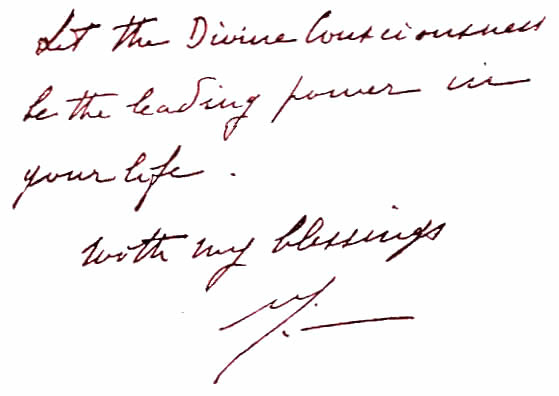 Let the Divine Consciousness
be the leading power in
your life.
with my blessings